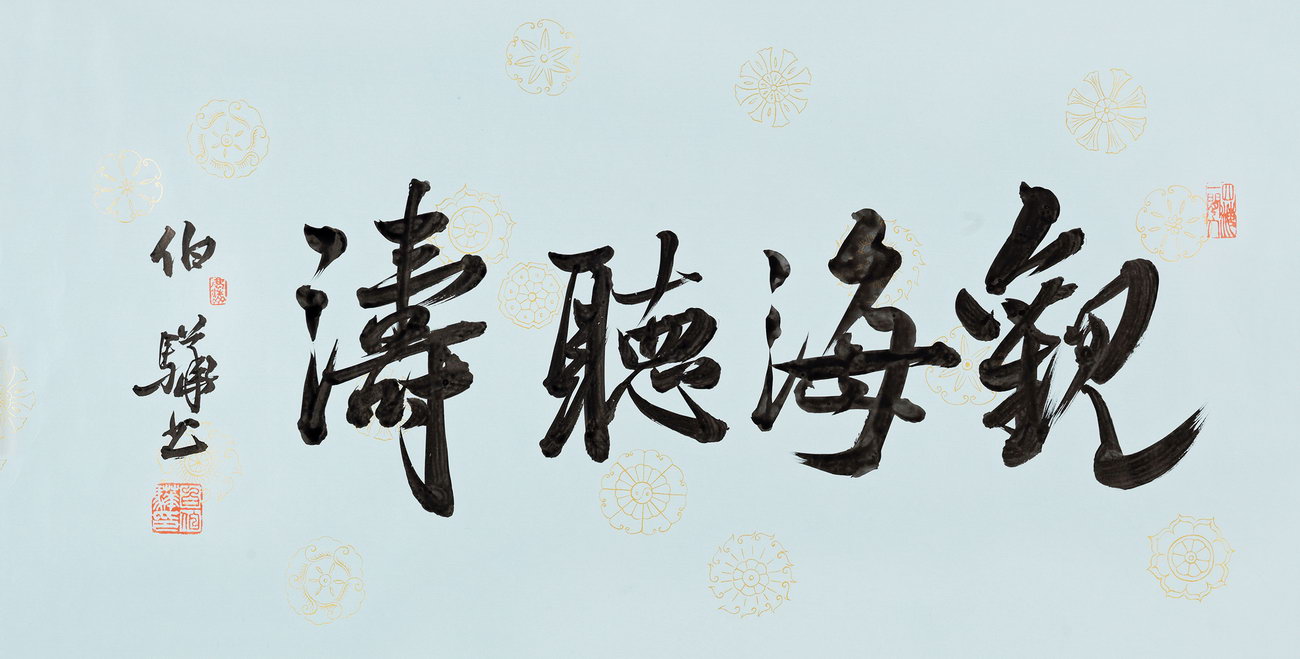 觀海聽濤
伯驊书